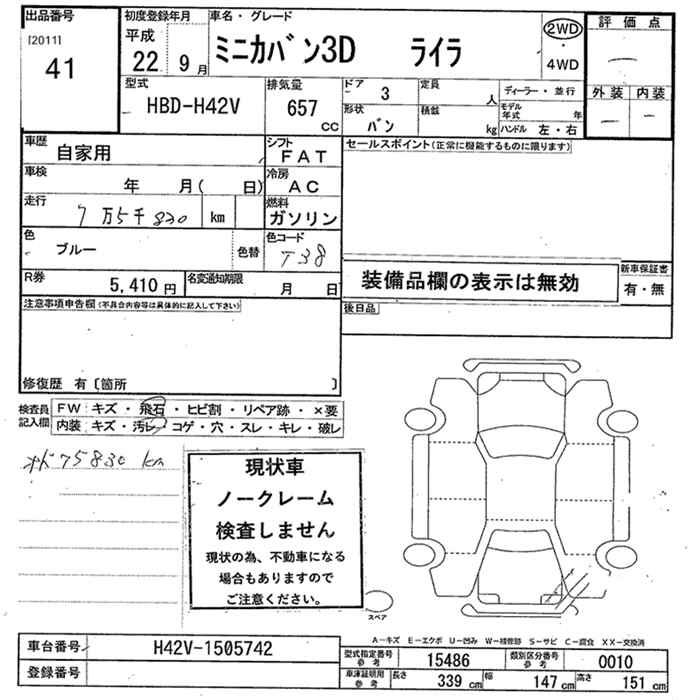 出品番号
[2011]
41
初度登録年月
平成
22 9月
車名・グレード
ミニカバン3D ライラ
2WD
・
4WD
評価点
外装 内装
型式
HBD-H42V
排気量
657
cc
ドア
3
定員
人
形状
バン
積載
kg
ディーラー・並行
モデル
年式 年
ハンドル 左・右
車歴
自家用
シフト
FAT
車検
年 月( 日)
冷房
AC
走行
7万5千830 km
燃料
ガソリン
色
ブルー
色替
色コード
T38
R券
5,410円
名変通知期限
月 日
セールスポイント(正常に機能するものに限ります)
装備品欄の表示は無効
新車保証書
有・無
後日品
注意事項申告欄(不具合内容等は具体的に記入して下さい)
修復歴 有〔箇所 〕
検査員
記入欄
FW キズ・飛石・ヒビ割・リペア跡・×要
内装 キズ・汚レ・コゲ・穴・スレ・キレ・破レ
75830 km
現状車
ノークレーム
検査しません
現状の為、不動車になる
場合もありますので
ご注意ください。
スペア
A-キズ E-エクボ U-凹み W-補修跡 S-サビ C-腐食 XX-交換済
車台番号
H42V-1505742
登録番号
型式指定番号
参考
15486
類別区分番号
参考
0010
車庫証明用
参考
長さ
339 cm
幅
147 cm
高さ
151 cm